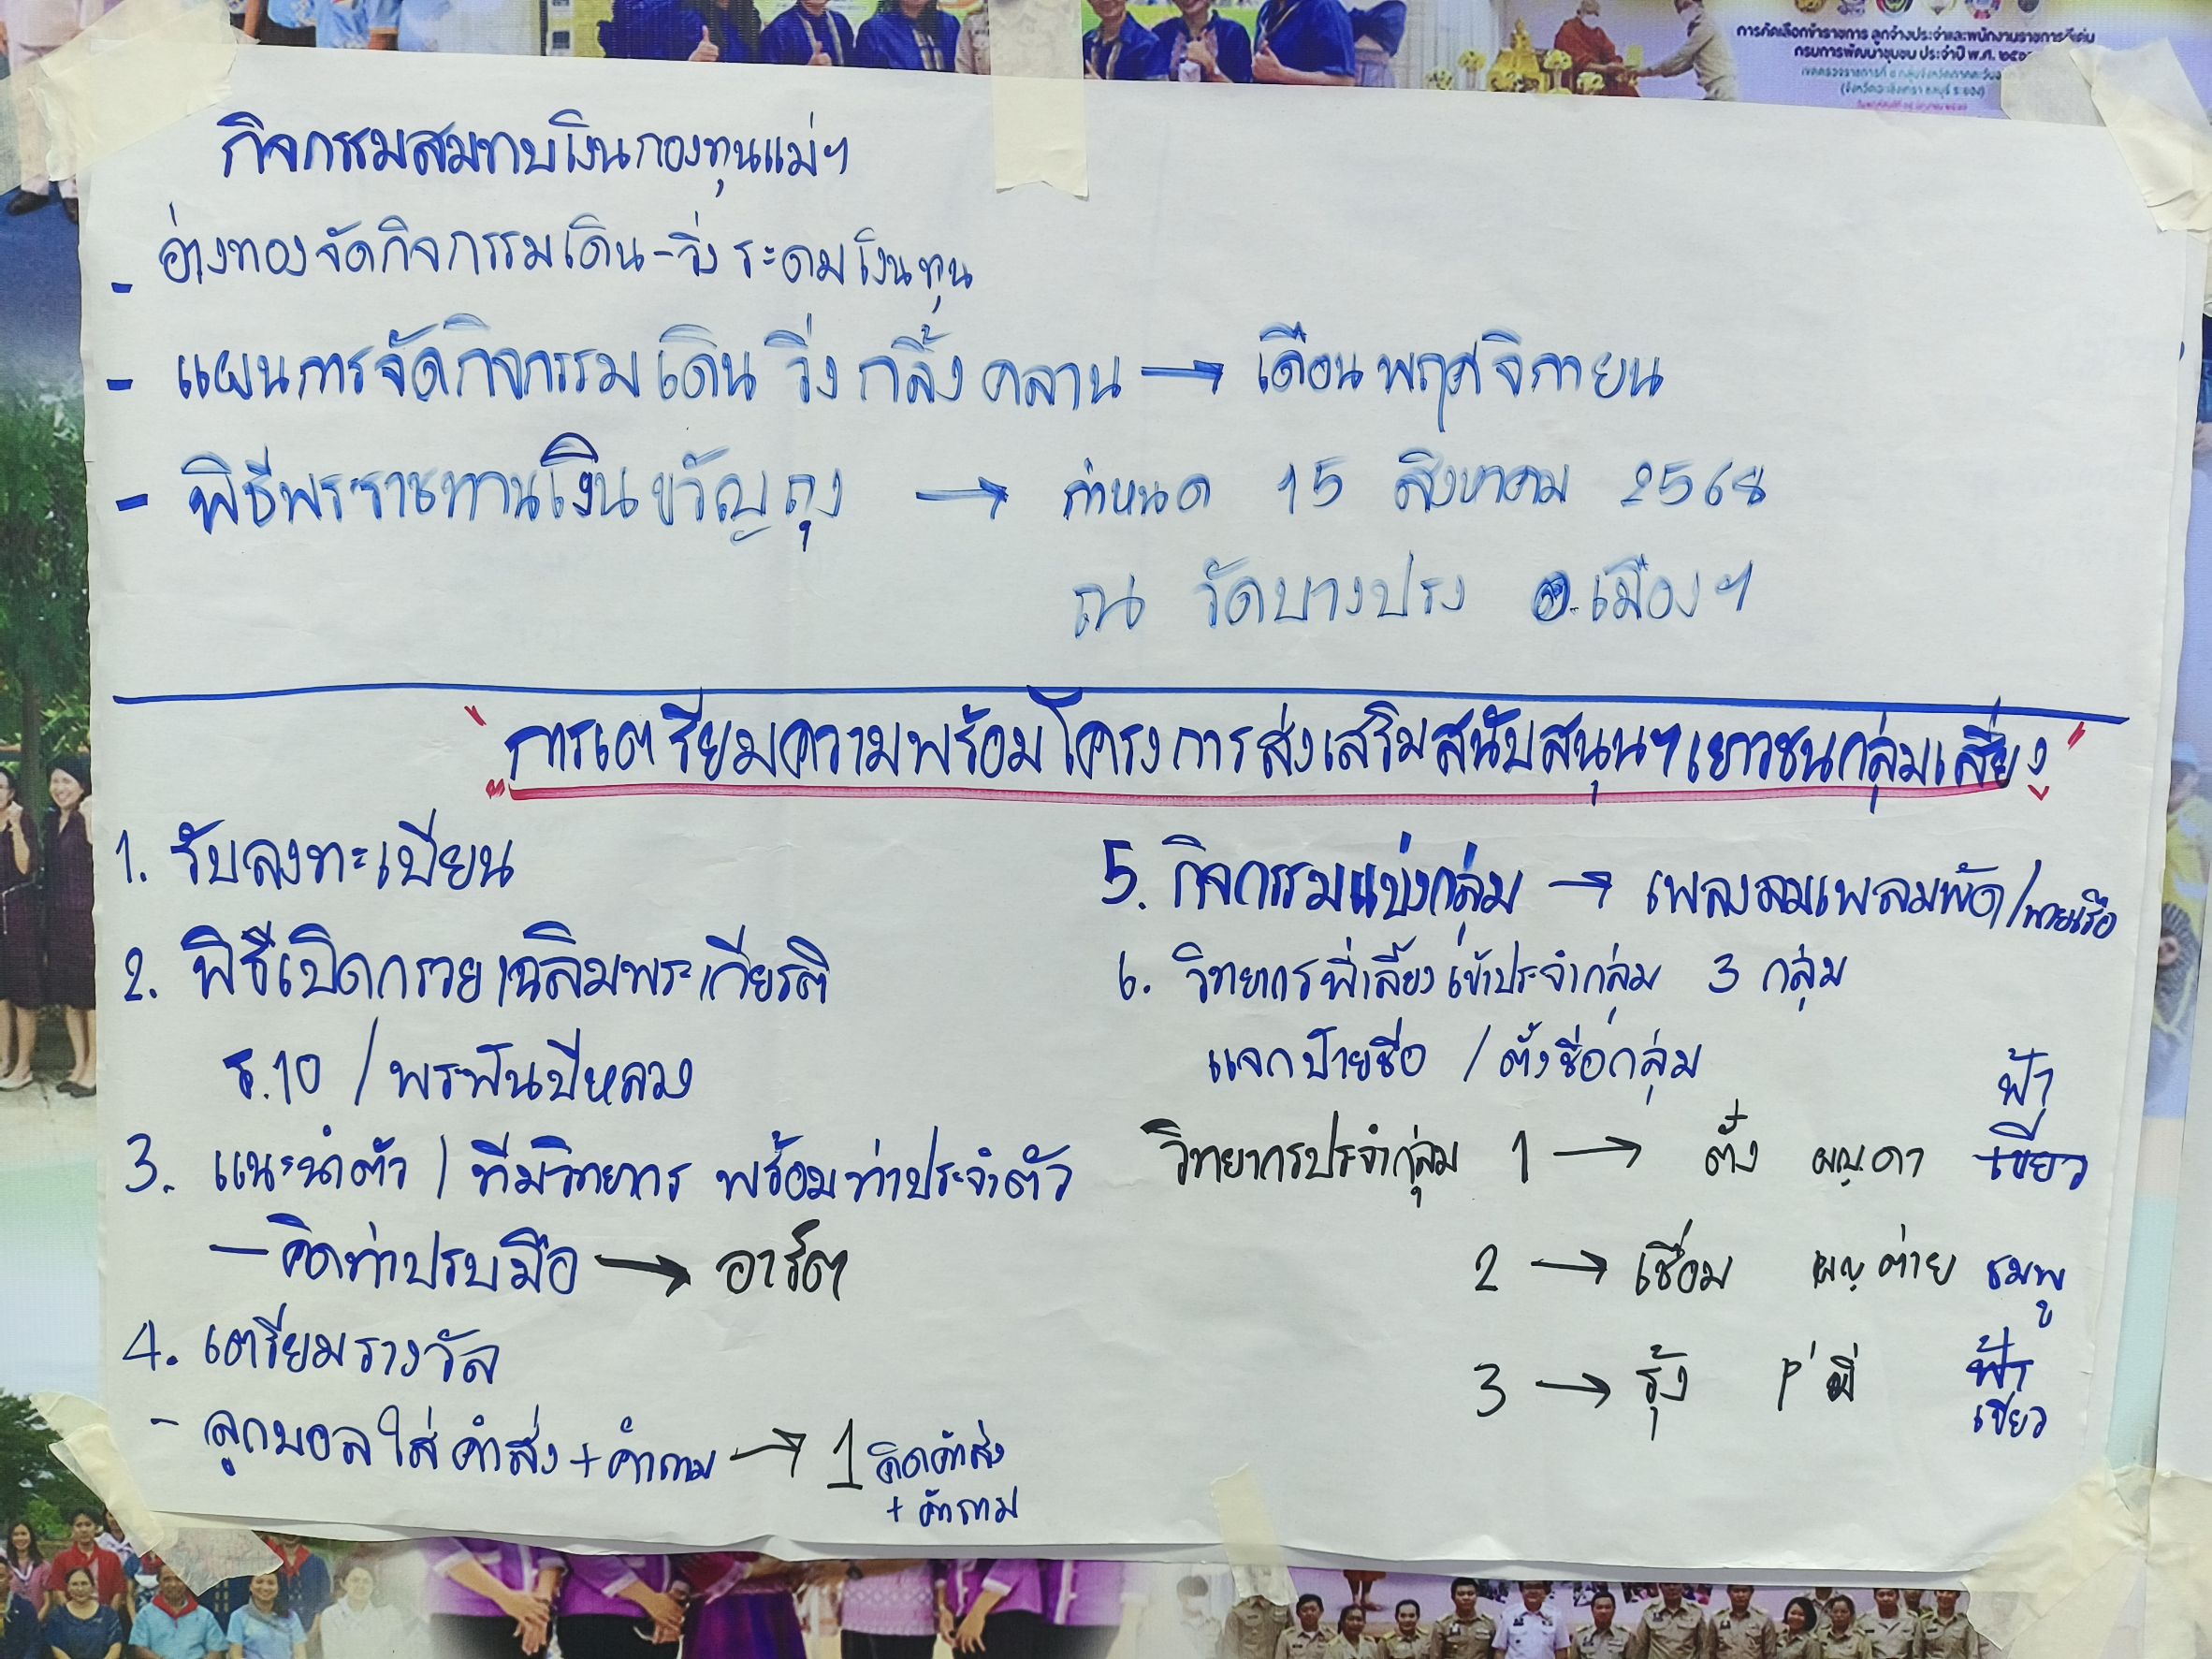 การคัดเลือกข้าราชการ ลูกจ้างประจำและพนักงานราชการดีเด่น
กรมการพัฒนาชุมชน ประจำปี พ.ศ.
กิจกรรมสมทบเงินกองทุนแม่ฯ
- อ่างทองจัดกิจกรรมเดิน-วิ่ง ระดมเงินทุน
- แผนการจัดกิจกรรม เดิน วิ่ง กลิ้ง คลาน → เดือนพฤศจิกายน
- พิธีพระราชทานเงินขวัญถุง → กำหนด 15 สิงหาคม 2568
ณ วัดบางปรง อ.เมืองฯ
"การเตรียมความพร้อมโครงการส่งเสริมสนับสนุนฯเยาวชนกลุ่มเสี่ยง"
1. รับลงทะเบียน
2. พิธีเปิดกรวยเฉลิมพระเกียรติ
ร.10 / พระพันปีหลวง
3. แนะนำตัว / ทีมวิทยากร พร้อมท่าประจำตัว
- คิดท่าปรบมือ → อาร์ต
4. เตรียมรางวัล
- ลูกบอลใส่คำสั่ง + คำถาม → 1 คิดคำสั่ง
+ คำถาม
5. กิจกรรมแบ่งกลุ่ม → เพลงลมเพลมพัด/พายเรือ
6. วิทยากรพี่เลี้ยงเข้าประจำกลุ่ม 3 กลุ่ม
แจกป้ายชื่อ / ตั้งชื่อกลุ่ม
ฟ้า
วิทยากรประจำกลุ่ม 1 → ตั้ง ผญ.ดา เขียว
2 → เชื่อม ผญ.ต่าย ชมพู
3 → รุ้ง P'มี่ ฟ้า
เขียว